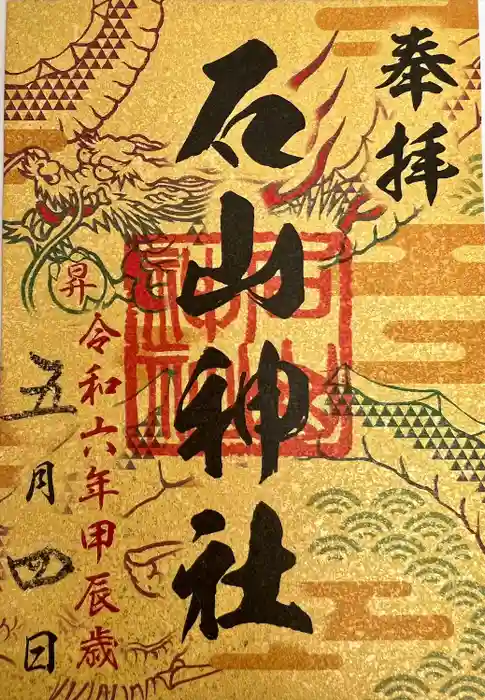 奉拝
石山神社
石山神社
昇
令和六年甲辰歳
五月四日